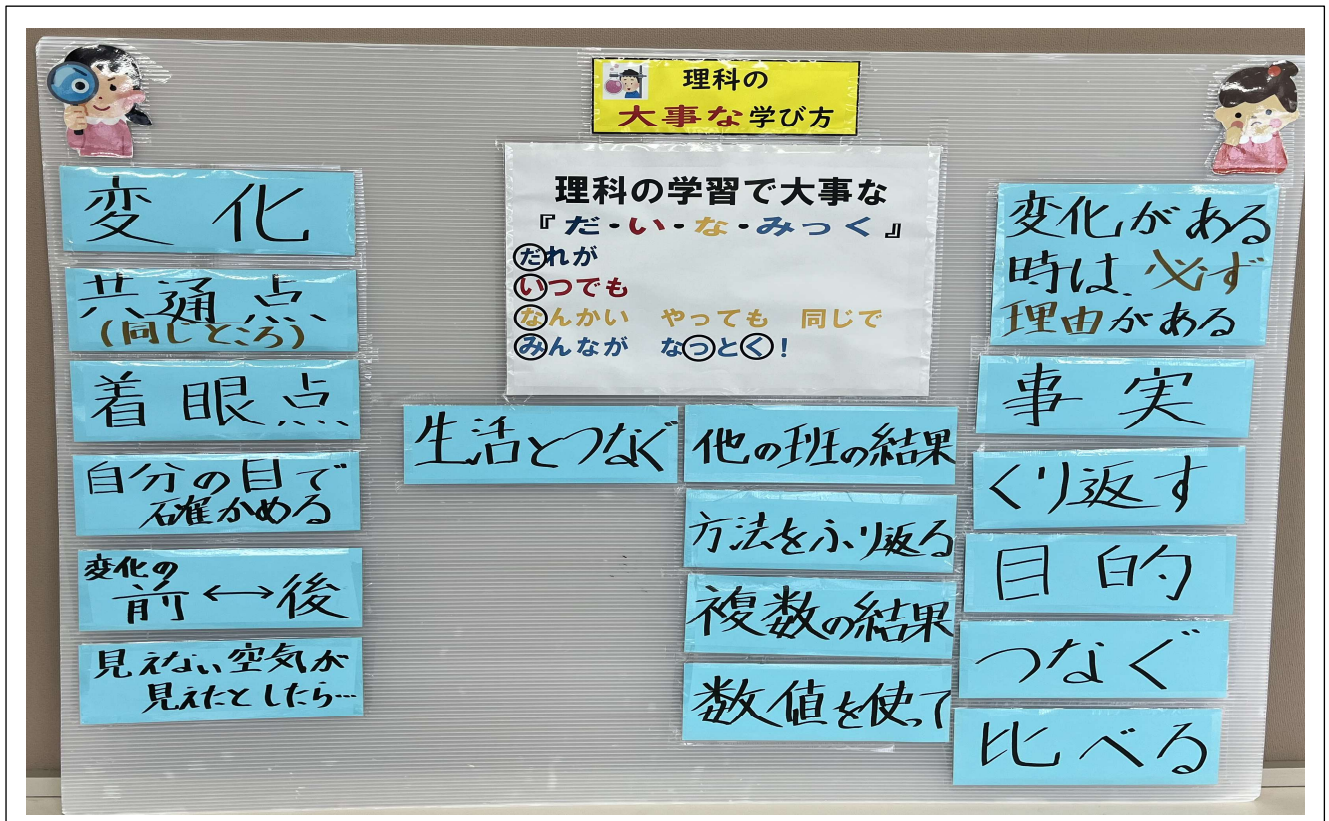 理科の
大事な学び方
理科の学習で大事な
『だ・い・な・みっく』
だれが
いつでも
なんかい　やっても　同じで
みんなが　なっとく！
変化
共通点
(同じところ)
着眼点
自分の目で
確かめる
変化の
前↔後
見えない空気が
見えたとしたら…
生活とつなぐ
他の班の結果
方法をふり返る
複数の結果
数値を使って
変化がある
時は、必ず
理由がある
事実
くり返す
目的
つなぐ
比べる